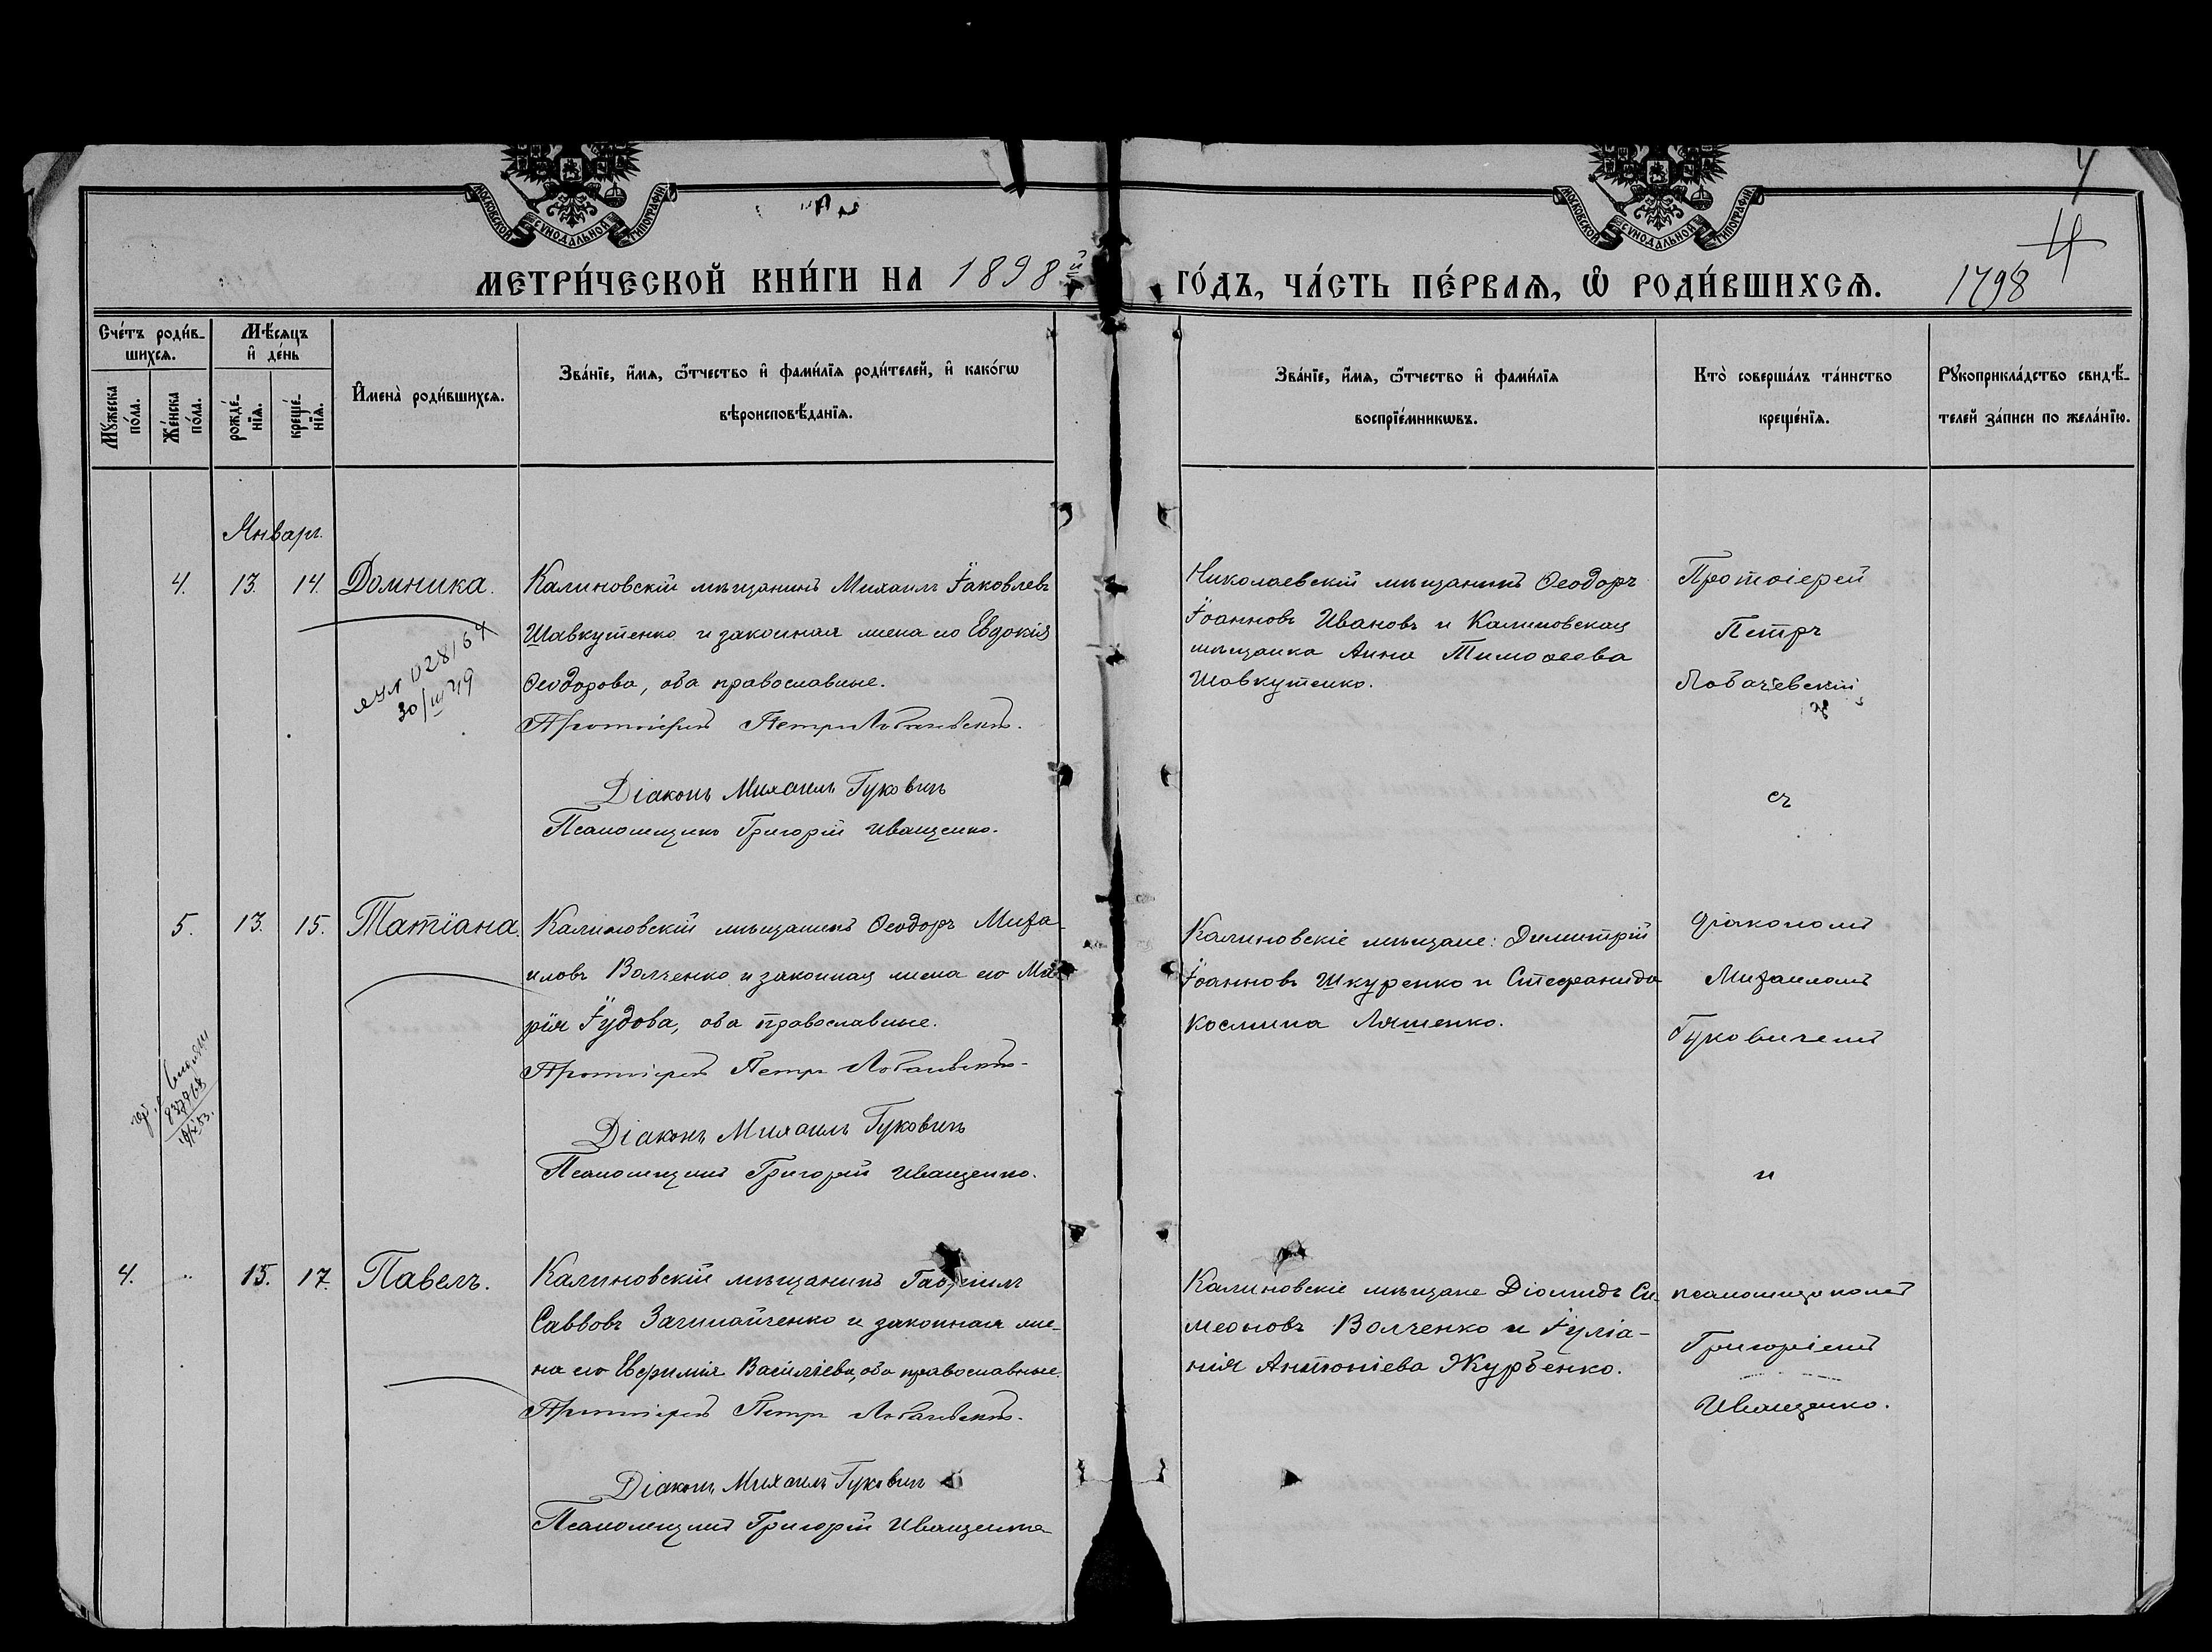 МОСКОВСКОЙ СѴНОДАЛЬНОЙ ТИПОГРАФІИ
МОСКОВСКОЙ СѴНОДАЛЬНОЙ ТИПОГРАФІИ
4
4
МЕТРИ́ЧЕСКОЙ КНИ́ГИ НА 1898й ГО́ДЪ, ЧА́СТЬ ПЕ́РВАѦ, Ѡ҆ РОДИ́ВШИХСѦ. 1798
Сче́тъ роди́в-
шихсѧ.
Мѣ́сѧцъ
и҆ де́нь
Мꙋ́жеска
по́ла.
Же́нска
по́ла.
рожде́-
нїѧ.
креще́-
нїѧ.
И҆мена̀ роди́вшихсѧ.
Зва́нїе, и҆́мѧ, ѻ҆́тчество и҆ фами́лїѧ роди́телей, и҆ како́гѡ
вѣроисповѣ́данїѧ.
Зва́нїе, и҆́мѧ, ѻ҆́тчество и҆ фами́лїѧ
воспрїе́мникѡвъ.
Кто̀ соверша́лъ та́инство
креще́нїѧ.
Рꙋкоприкла́дство свидѣ́-
телей за́писи по жела́нїю.
Январь.
4. 13. 14. Домника.
Калиновскій мѣщанинъ Михаилъ Іаковлевъ
Шавкутенко и законная жена его Евдокія
Ѳеодорова, оба православные.
Протоіерей Петръ Лобачевскій.
Діаконъ Михаилъ Гуковичъ
Псаломщикъ Григорій Иващенко.
Николаевскій мѣщанинъ Ѳеодоръ
Іоанновъ Ивановъ и Калиновская
мѣщанка Анна Тимоѳеева
Шавкутенко.
Протоіерей
Петръ
Лобачевскій
съ
30/III 49
5. 13. 15. Татіана.
Калиновскій мѣщанинъ Ѳеодоръ Миха-
иловъ Волченко и законная жена его Ма-
рія Іудова, оба православные.
Протоіерей Петръ Лобачевскій.
Діаконъ Михаилъ Гуковичъ
Псаломщикъ Григорій Иващенко.
Калиновскіе мѣщане: Димитрій
Іоанновъ Шкуренко и Стефанида
Космина Ляшенко.
Діакономъ
Михаиломъ
Гуковичемъ
и
4. „ 15. 17. Павелъ.
Калиновскій мѣщанинъ Гавріилъ
Саввовъ Зачипайченко и законная же-
на его Евфимія Василіева, оба православные.
Протоіерей Петръ Лобачевскій.
Діаконъ Михаилъ Гуковичъ
Псаломщикъ Григорій Иващенко
Калиновскіе мѣщане Діомидъ Си-
меоновъ Волченко и Іуліа-
нія Антоніева Журбенко.
псаломщикомъ
Григоріемъ
Иващенко.